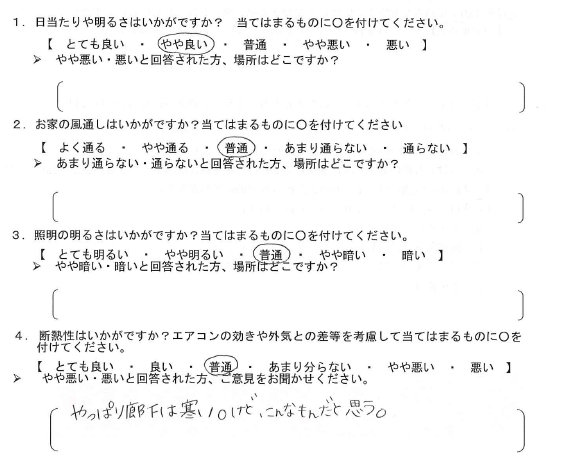 1．日当たりや明るさはいかがですか？　当てはまるものに〇を付けてください。
【　とても良い　・　やや良い　・　普通　・　やや悪い　・　悪い　】
➢　やや悪い・悪いと回答された方、場所はどこですか？
2．お家の風通しはいかがですか？当てはまるものに〇を付けてください
【　よく通る　・　やや通る　・　普通　・　あまり通らない　・　通らない　】
➢　あまり通らない・通らないと回答された方、場所はどこですか？
3．照明の明るさはいかがですか？当てはまるものに〇を付けてください。
【　とても明るい　・　やや明るい　・　普通　・　やや暗い　・　暗い　】
➢　やや暗い・暗いと回答された方、場所はどこですか？
4．断熱性はいかがですか？エアコンの効きや外気との差等を考慮して当てはまるものに〇を
付けてください。
【　とても良い　・　良い　・　普通　・　あまり分らない　・　やや悪い　・　悪い　】
➢　やや悪い・悪いと回答された方、ご意見をお聞かせください。
やっぱり廊下は寒い。けど、こんなもんだと思う。